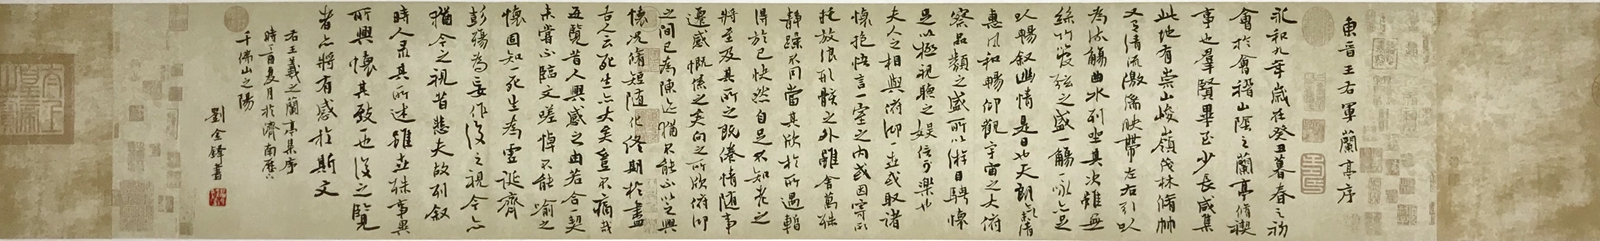 東晉王右軍蘭亭序
永和九年歲在癸丑暮春之初
會於會稽山陰之蘭亭脩禊
事也羣賢畢至少長咸集
此地有崇山峻嶺茂林脩竹
又有清流激湍映帶左右引以
為流觴曲水列坐其次雖無
絲竹管弦之盛一觴一詠亦足
以暢叙幽情是日也天朗氣清
惠風和暢仰觀宇宙之大俯
察品類之盛所以遊目騁懷
足以極視聽之娛信可樂也
夫人之相與俯仰一世或取諸
懷抱悟言一室之內或因寄所
托放浪形骸之外雖萬殊
靜躁不同當其欣於所遇暫
得於己快然自足不知老之
將至及其所之既倦情隨事
遷感慨係之矣向之所欣俯仰
之間已為陳迹猶不能不以之興
懷況脩短隨化終期於盡
古人云死生亦大矣豈不痛哉
每覽昔人興感之由若合一契
未嘗不臨文嗟悼不能喻之
懷固知死生為虛誕齊
彭殤為妄作後之視今亦
猶今之視昔悲夫故列叙
時人录其所述雖世殊事異
所興懷其致一也後之覽
者亦將有感於斯文
右王羲之蘭亭集序
時夏月於濟南歷下
千佛山之陽
劉金鐸書